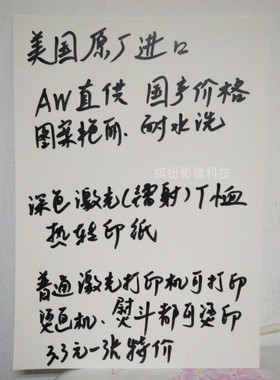 美国原厂进口
AW直供 国产价格
图案艳丽、耐水洗
缤纷影像科技
深色激光(镭射)T恤
热转印纸
普通激光打印机可打印
烫画机、熨斗都可烫印
3.3元一张特价